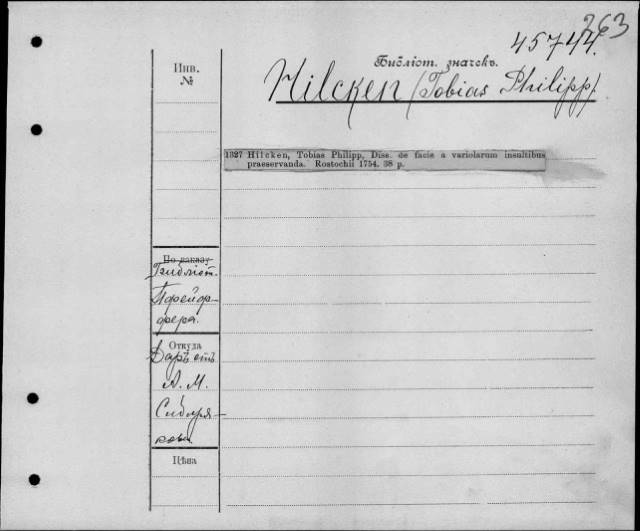 263
45744.
Библіот. значекъ.
Hilcken (Tobias Philipp).
Инв.
№
1327 Hilcken, Tobias Philipp, Diss. de facie a variolarum insultibus
praeservanda. Rostochii 1754. 38 p.
По заказу
Библіот.
Пфейф-
фера.
Откуда
Даръ отъ
А. М.
Сибиря-
кова
Цѣна